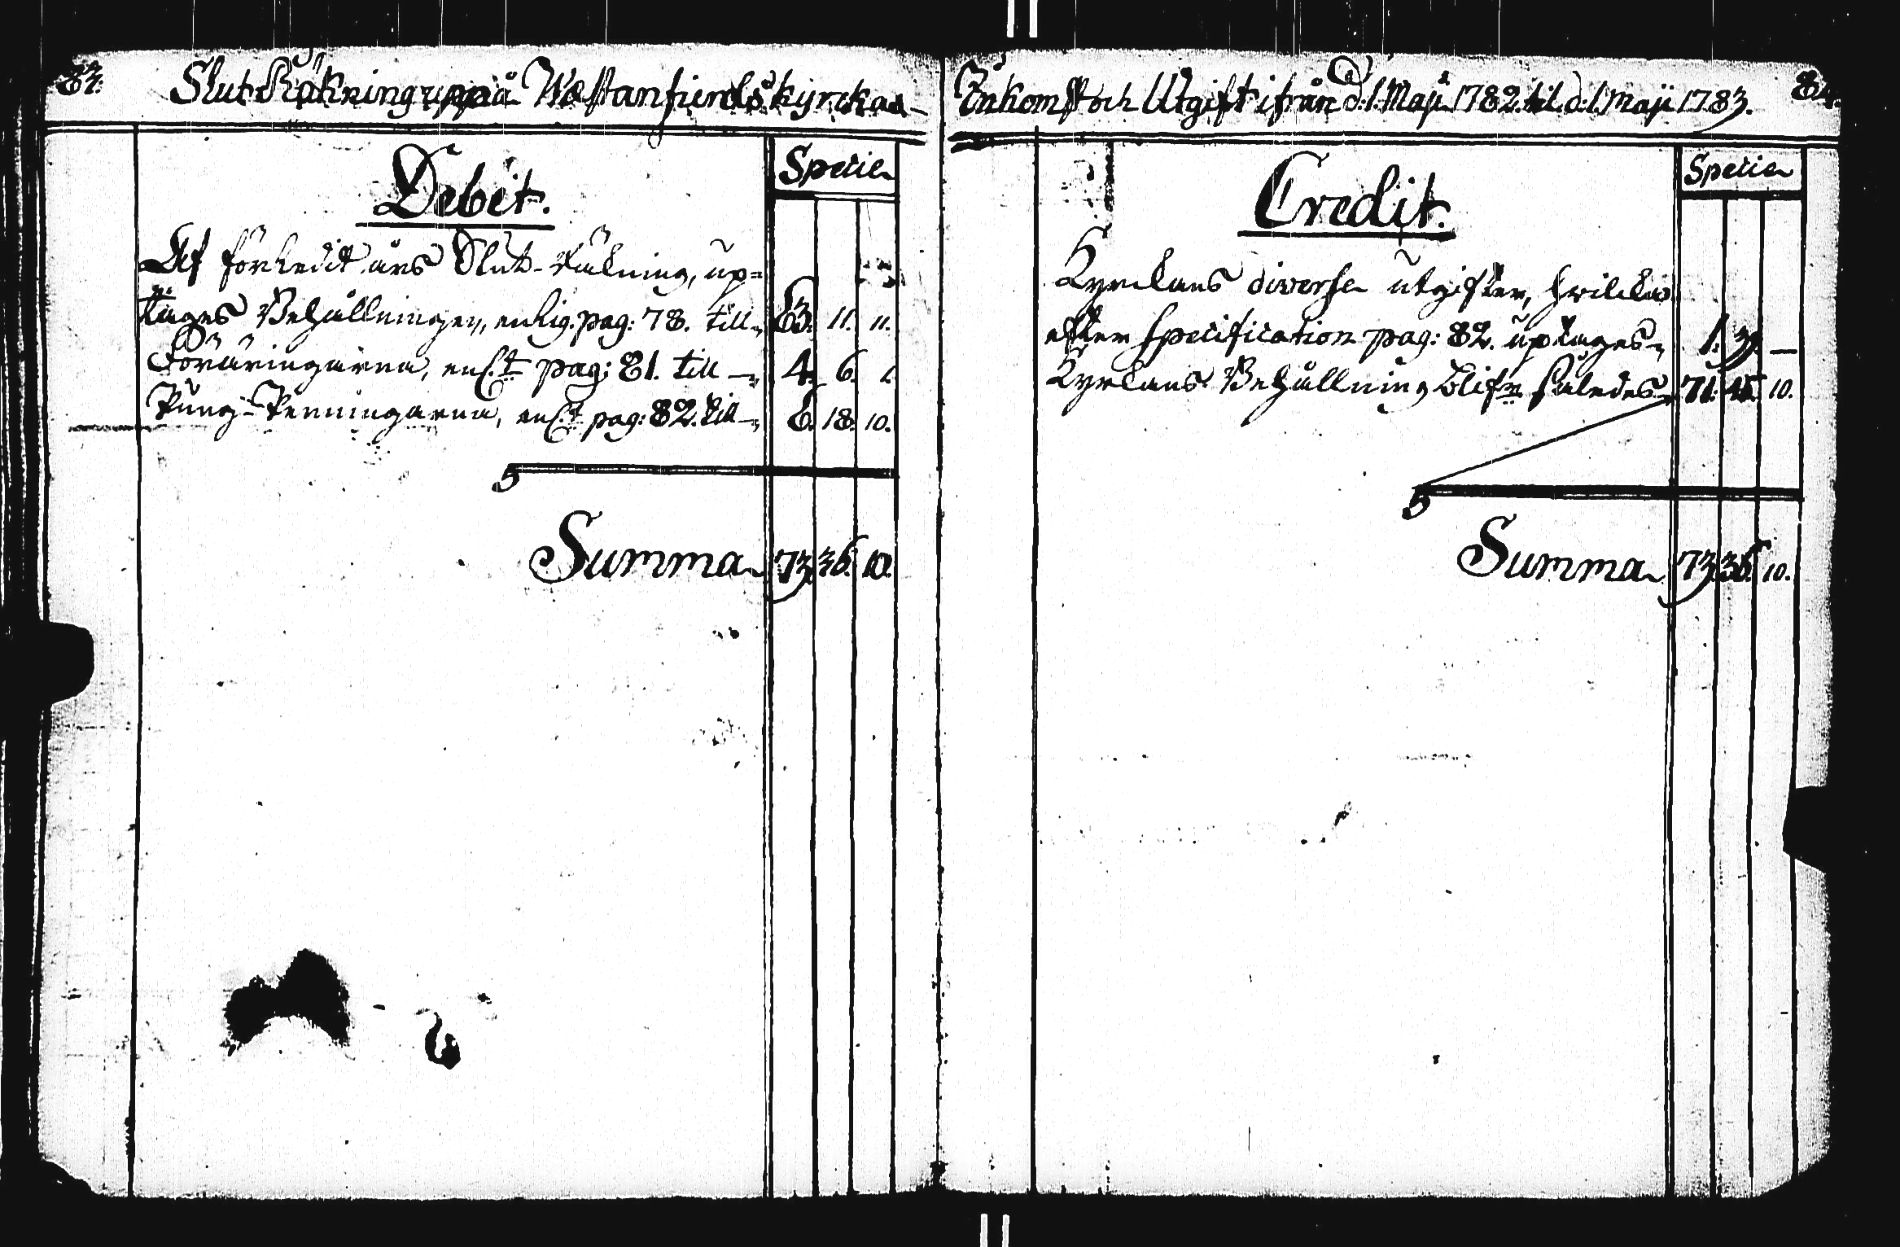 83.
Slut Räkning uppå Wæstanfierds kyrckas
Debet.
Specie
Af förledit års Slut-Räkning, up=
tages Behållningen, enlig. pag: 78. till 63. 11. 11.
Föräringarna, enl:t pag: 81. till 4. 6. 1.
Pung-Penningarna, enl:t pag: 82. till 6. 18. 10.
Summa 73. 36. 10.
84.
Inkomst och Utgift ifrån d: 1. Maji 1782. til d: 1. Maji 1783.
Credit.
Specie
Kyrckans diverse utgifter, hvilcka
efter specification pag: 82. uptages 1. 39. —
Kyrckans Behållning blifr således 71. 45. 10.
Summa 73. 36. 10.